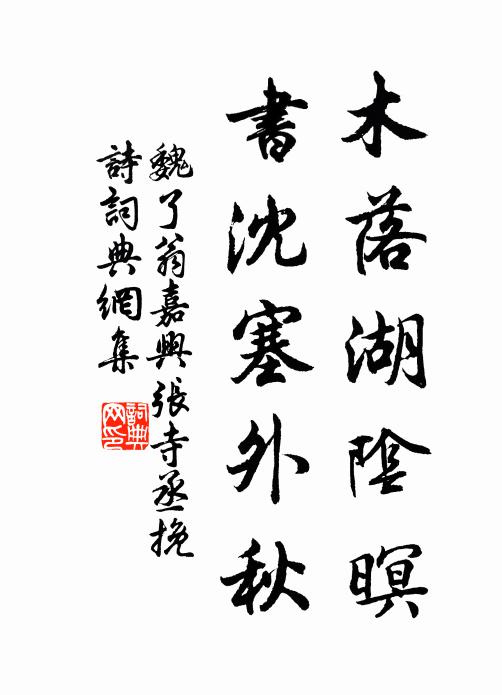 木落湖陰暝
書沈塞外秋
魏了翁嘉興張寺丞挽
詩詞典網集
詞典网印